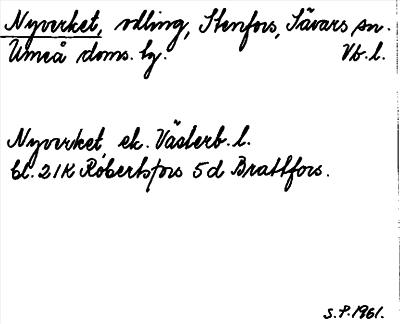 Nyverket, odling, Stenfors, Sävars sn.
Umeå doms. hg. Vb. l.
Nyverket, ek. Västerb. l.
bl. 21K Robertsfors 5d Brattfors.
S.P. 1961.